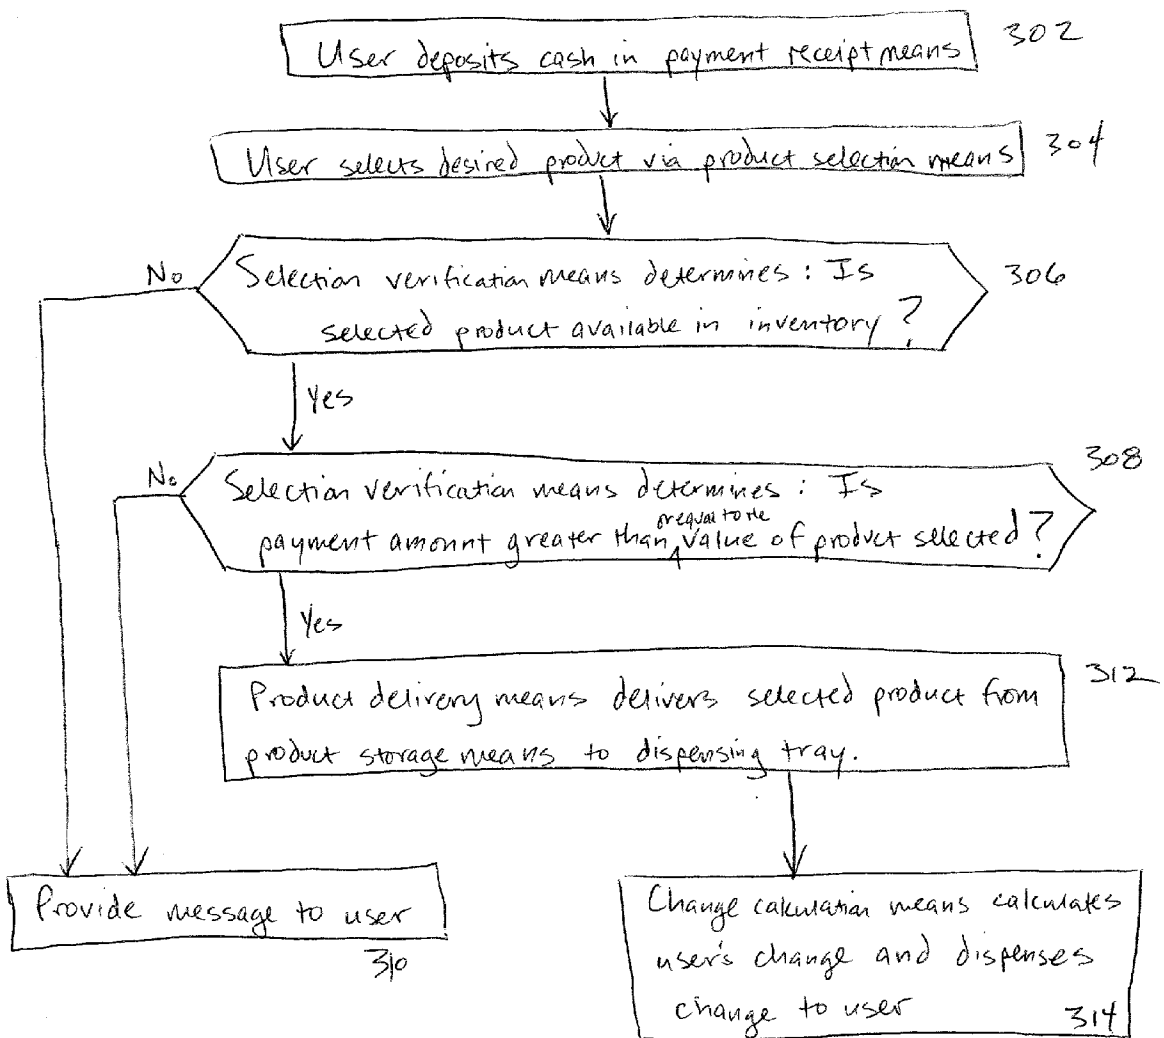 User deposits cash in payment receipt means
302
User selects desired product via product selection means
304
No
Selection verification means determines : Is
306
selected product available in inventory ?
Yes
No
Selection verification means determines : Is
308
or equal to the
payment amount greater than value of product selected ?
Yes
Product delivery means delivers selected product from
312
product storage means to dispensing tray.
Provide message to user
310
Change calculation means calculates
user's change and dispenses
change to user
314